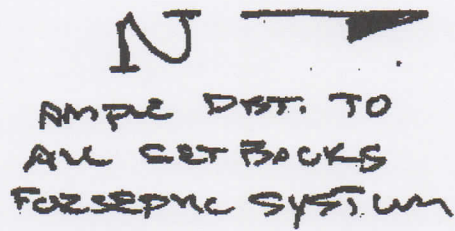 N
AMPLE DIST. TO
ALL SETBACKS
FOR SEPTIC SYSTEM